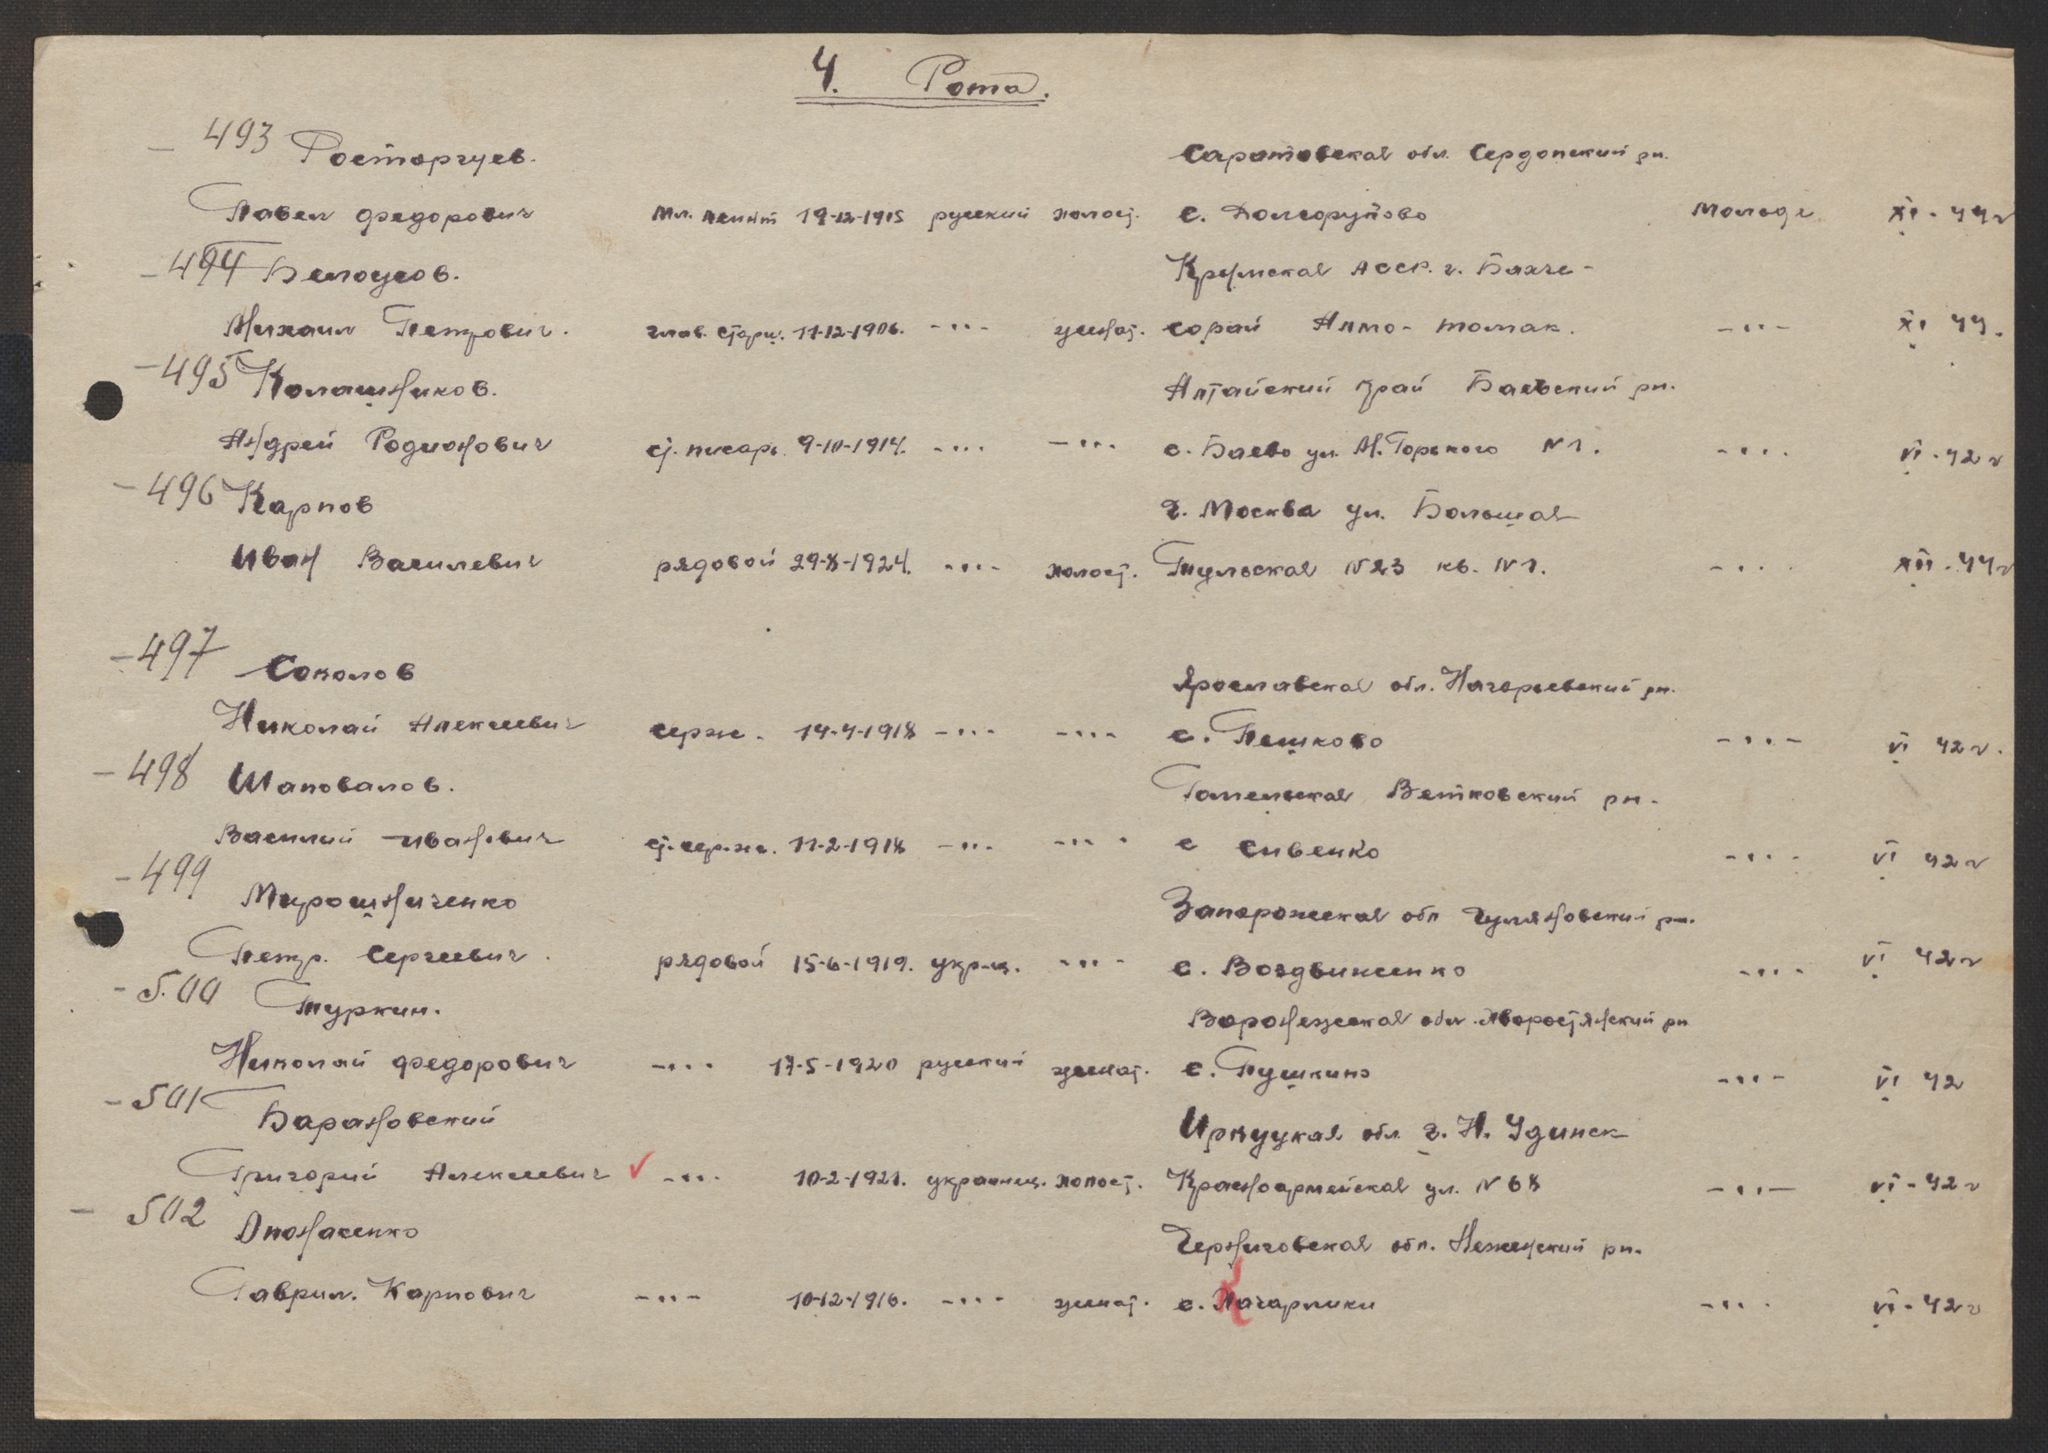 4. Рота.
493 Росторгуев. Саратовская обл. Сердопский рн.
Павел Федорович мл. лейнт 19-12-1915 русский холост. с. Долгоруково Молоде XI-44г
494 Белоусов. Крымская АССР. г. Бахче-
Михаил Петрович. глав. старш. 11-12-1906. -··- женат. сорай Алмо-томак. -··- XI 44.
495 Колашников. Алтайский край Баевский рн.
Андрей Родионович ст. писарь 9-10-1914. -··- -··- с. Баево ул. М. Горького N 1. -··- VI-42г
496 Карпов г. Москва ул. Большая
Иван Васильевич рядовой 29-8-1924. -··- холост. Тульская N 23 кв. N 1. -··- XII-44г
497 Соколов Ярославская обл. Нагорьевский рн.
Николай Алексеевич серж. 14-4-1918 -··- -··- с. Пешково -··- VI 42г.
498 Шаповалов. Гомельская Ветковский рн.
Василий Иванович ст. серж. 11-2-1918 -··- -··- с Сивенко -··- VI 42г
499 Мирошниченко Запорожская обл Гуляновский рн.
Петр. Сергеевич. рядовой 15-6-1919. укр-ц. -··- с. Воздвиженко -··- VI 42г
500 Туркин. Воронежская обл. Дворостянский рн
Николай Федорович -··- 17-5-1920 русский женат. с. Пушкино -··- VI 42
501 Барановский Иркуцкая обл. г. Н. Удинск
Григорий Алексеевич ✓ -··- 10-2-1921. украинец. холост. Красноармейская ул. N 68 -··- VI-42г
502 Опонасенко Черниговская обл. Неженский рн.
Гаврил. Карпович -··- 10-12-1916. -··- женат. с. -··- VI-42г